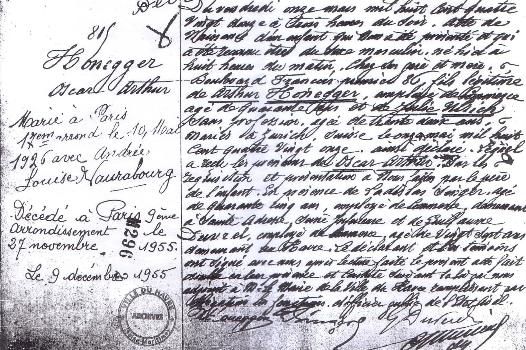 815
Honegger
Oscar Arthur
Marié à Paris
17em arrond le 10 Mai
1926 avec Andrée
Louise Vaurabourg
Décédé à Paris 9ème
arrondissement le
27 novembre 1955.
Le 9 décembre 1955
VILLE DU HAVRE
ARCHIVES
Du vendredi onze mars mil huit cent quatre
vingt douze à trois heures du soir. Acte de
Naissance d'un enfant qui Nous a été présenté et qui
a été reconnu être du sexe masculin, né hier à
huit heures du matin, chez ses père et mère,
Boulevard François premier 86, fils légitime
de Arthur Honegger, employé de commerce
agé de quarante ans et de Julie Ulrich
sans profession, agée de trente deux ans
Mariés à Zurich Suisse le onze mai mil huit
cent quatre vingt onze, ainsi déclaré. Auquel
a été donné les prénoms de Oscar Arthur. Sur la
réquisition et présentation à Nous faites par le père
de l'enfant. En présence de agé
de quarante cinq ans, employé de commerce, demeurant
à Sainte Adresse, Seine Inférieure et de Guillaume
employé de commerce, agé de vingt sept ans
demeurant au Havre. Le déclarant et les témoins
ont signé avec nous après lecture faite le présent acte fait
double en leur présence et constaté suivant la loi par nous
adjoint à M. le Maire de la Ville du Havre remplissant par
délégation les fonctions d'officier public de l'Etat civil.